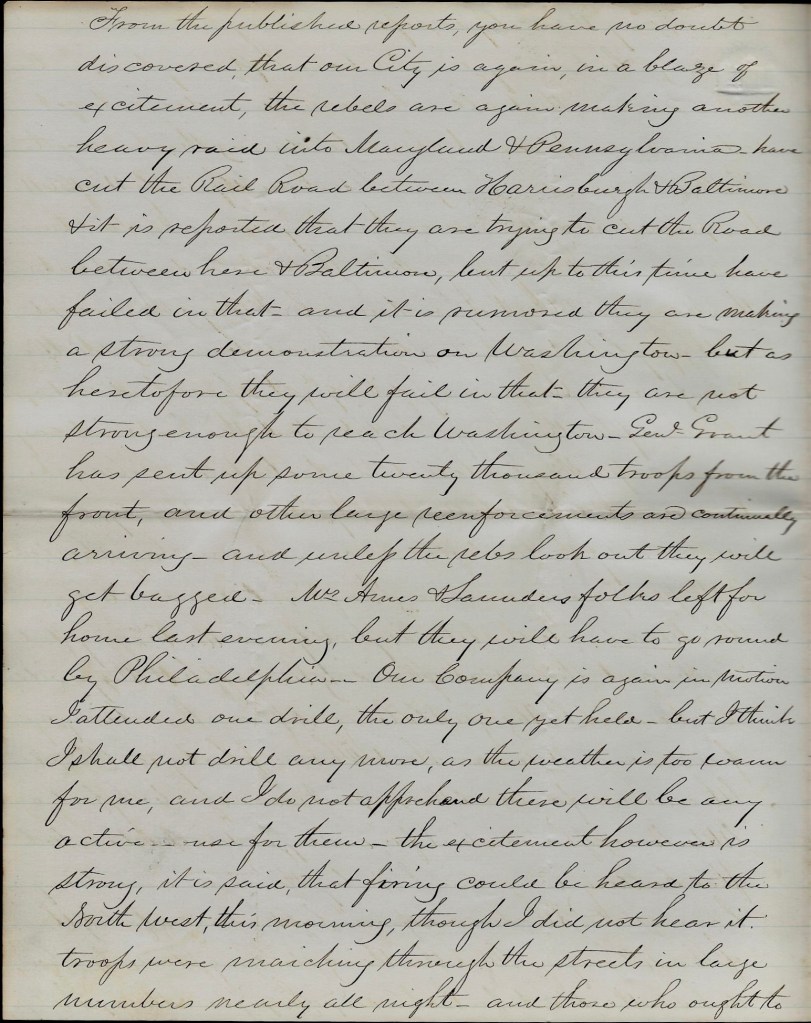 From the published reports, you have no doubt
discovered, that our City is again, in a blaze of
excitement, the rebels are again making another
heavy raid into Maryland & Pennsylvania - have
cut the Rail Road between Harrisburgh & Baltimore
& it is reported that they are trying to cut the Road
between here & Baltimore, but up to this time have
failed in that - and it is rumored they are making
a strong demonstration on Washington - but as
heretofore they will fail in that - they are not
strong enough to reach Washington - Genl. Grant
has sent up some twenty thousand troops from the
front, and other large reenforcements are continually
arriving - and unless the rebs look out they will
get bagged - Mrs Ames & Saunders folks left for
home last evening, but they will have to go round
by Philadelphia - Our Company is again in motion
I attended one drill, the only one yet held - but I think
I shall not drill any more, as the weather is too warm
for me, and I do not apprehend there will be any
active - use for them - the excitement however is
strong, it is said, that firing could be heard to the
North West, this morning, though I did not hear it.
troops were marching through the streets in large
numbers nearly all night - and those who ought to